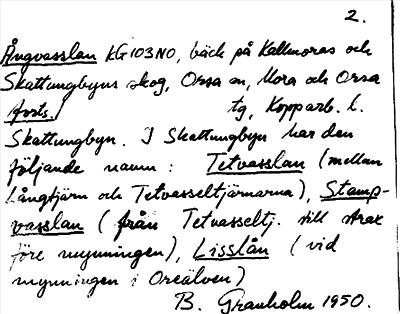 2.
Ångvasslan KG103NO, bäck på Kallmoras och
Skattungbyns skog, Orsa sn, Mora och Orsa
forts.) tg, Kopparb. l.
Skattungbyn. I Skattungbyn har den
följande namn: Tetvasslan (mellan
Långtjärn och Tetvasseltjärnarna), Stamp-
vasslan (från Tetvasseltj. till strax
före mynningen), Lisslån (vid
mynningen i Oreälven)
B. Granholm 1950.